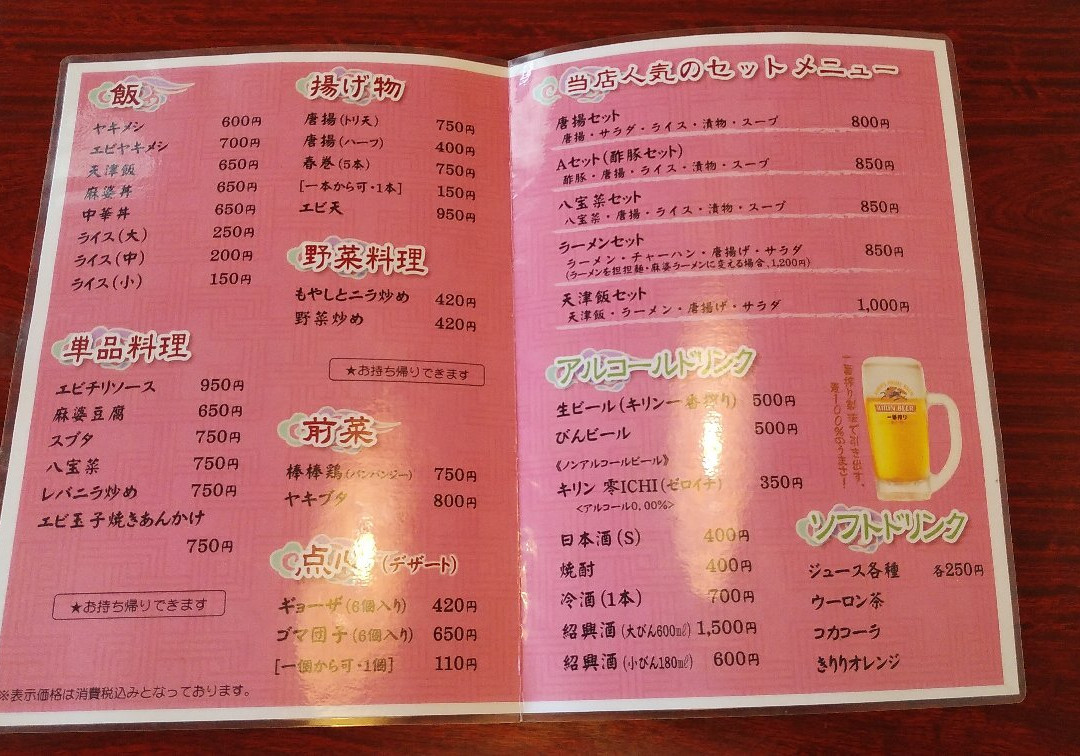 飯
ヤキメシ 600円
エビヤキメシ 700円
天津飯 650円
麻婆丼 650円
中華丼 650円
ライス(大) 250円
ライス(中) 200円
ライス(小) 150円
単品料理
エビチリソース 950円
麻婆豆腐 650円
スブタ 750円
八宝菜 750円
レバニラ炒め 750円
エビ玉子焼きあんかけ
750円
★お持ち帰りできます
※表示価格は消費税込みとなっております。
揚げ物
唐揚(トリ天) 750円
唐揚(ハーフ) 400円
春巻(5本) 750円
[一本から可・1本] 150円
エビ天 950円
野菜料理
もやしとニラ炒め 420円
野菜炒め 420円
★お持ち帰りできます
前菜
棒棒鶏(バンバンジー) 750円
ヤキブタ 800円
点心(デザート)
ギョーザ(6個入り) 420円
ゴマ団子(6個入り) 650円
[一個から可・1個] 110円
当店人気のセットメニュー
唐揚セット 800円
唐揚・サラダ・ライス・漬物・スープ
Aセット(酢豚セット) 850円
酢豚・唐揚・ライス・漬物・スープ
八宝菜セット 850円
八宝菜・唐揚・ライス・漬物・スープ
ラーメンセット 850円
ラーメン・チャーハン・唐揚げ・サラダ
(ラーメンを担担麺・麻婆ラーメンに変える場合、1,200円)
天津飯セット 1,000円
天津飯・ラーメン・唐揚げ・サラダ
アルコールドリンク
生ビール(キリン一番搾り) 500円
びんビール 500円
《ノンアルコールビール》
キリン 零ICHI(ゼロイチ) 350円
<アルコール0,00%>
日本酒(S) 400円
焼酎 400円
冷酒(1本) 700円
紹興酒(大びん600㎖) 1,500円
紹興酒(小びん180㎖) 600円
KIRIN BEER
一番搾り
ソフトドリンク
ジュース各種 各250円
ウーロン茶
コカコーラ
きりりオレンジ